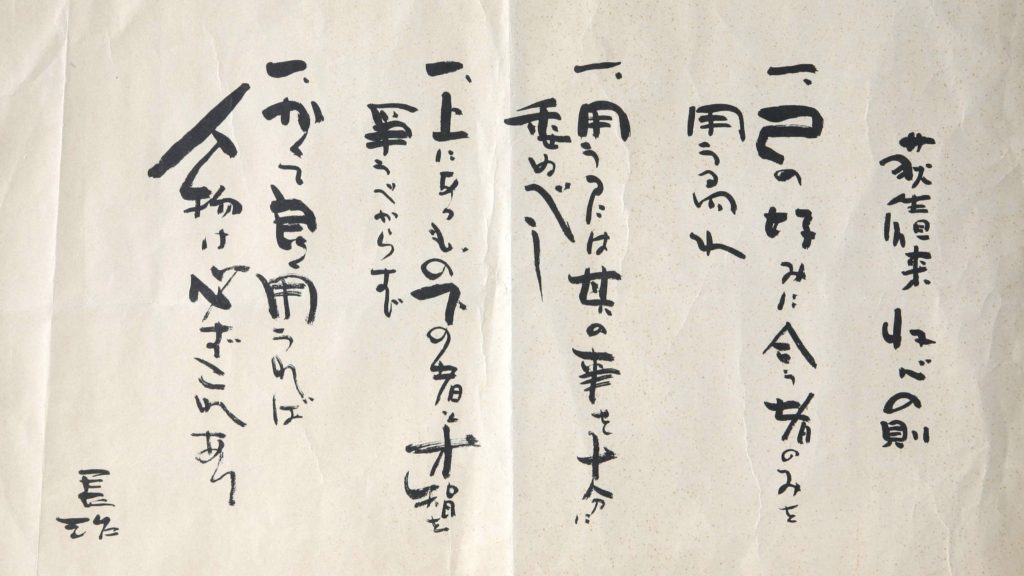 荻生徂来 収心の則
一、己の好みに合う者のみを
用うる勿れ
一、用うるには其の事を十分に
委ぬべし
一、上にあるもの下の者と才智を
爭うべからず
一、かくて良く用うれば
人物は必ずこれあり
長治